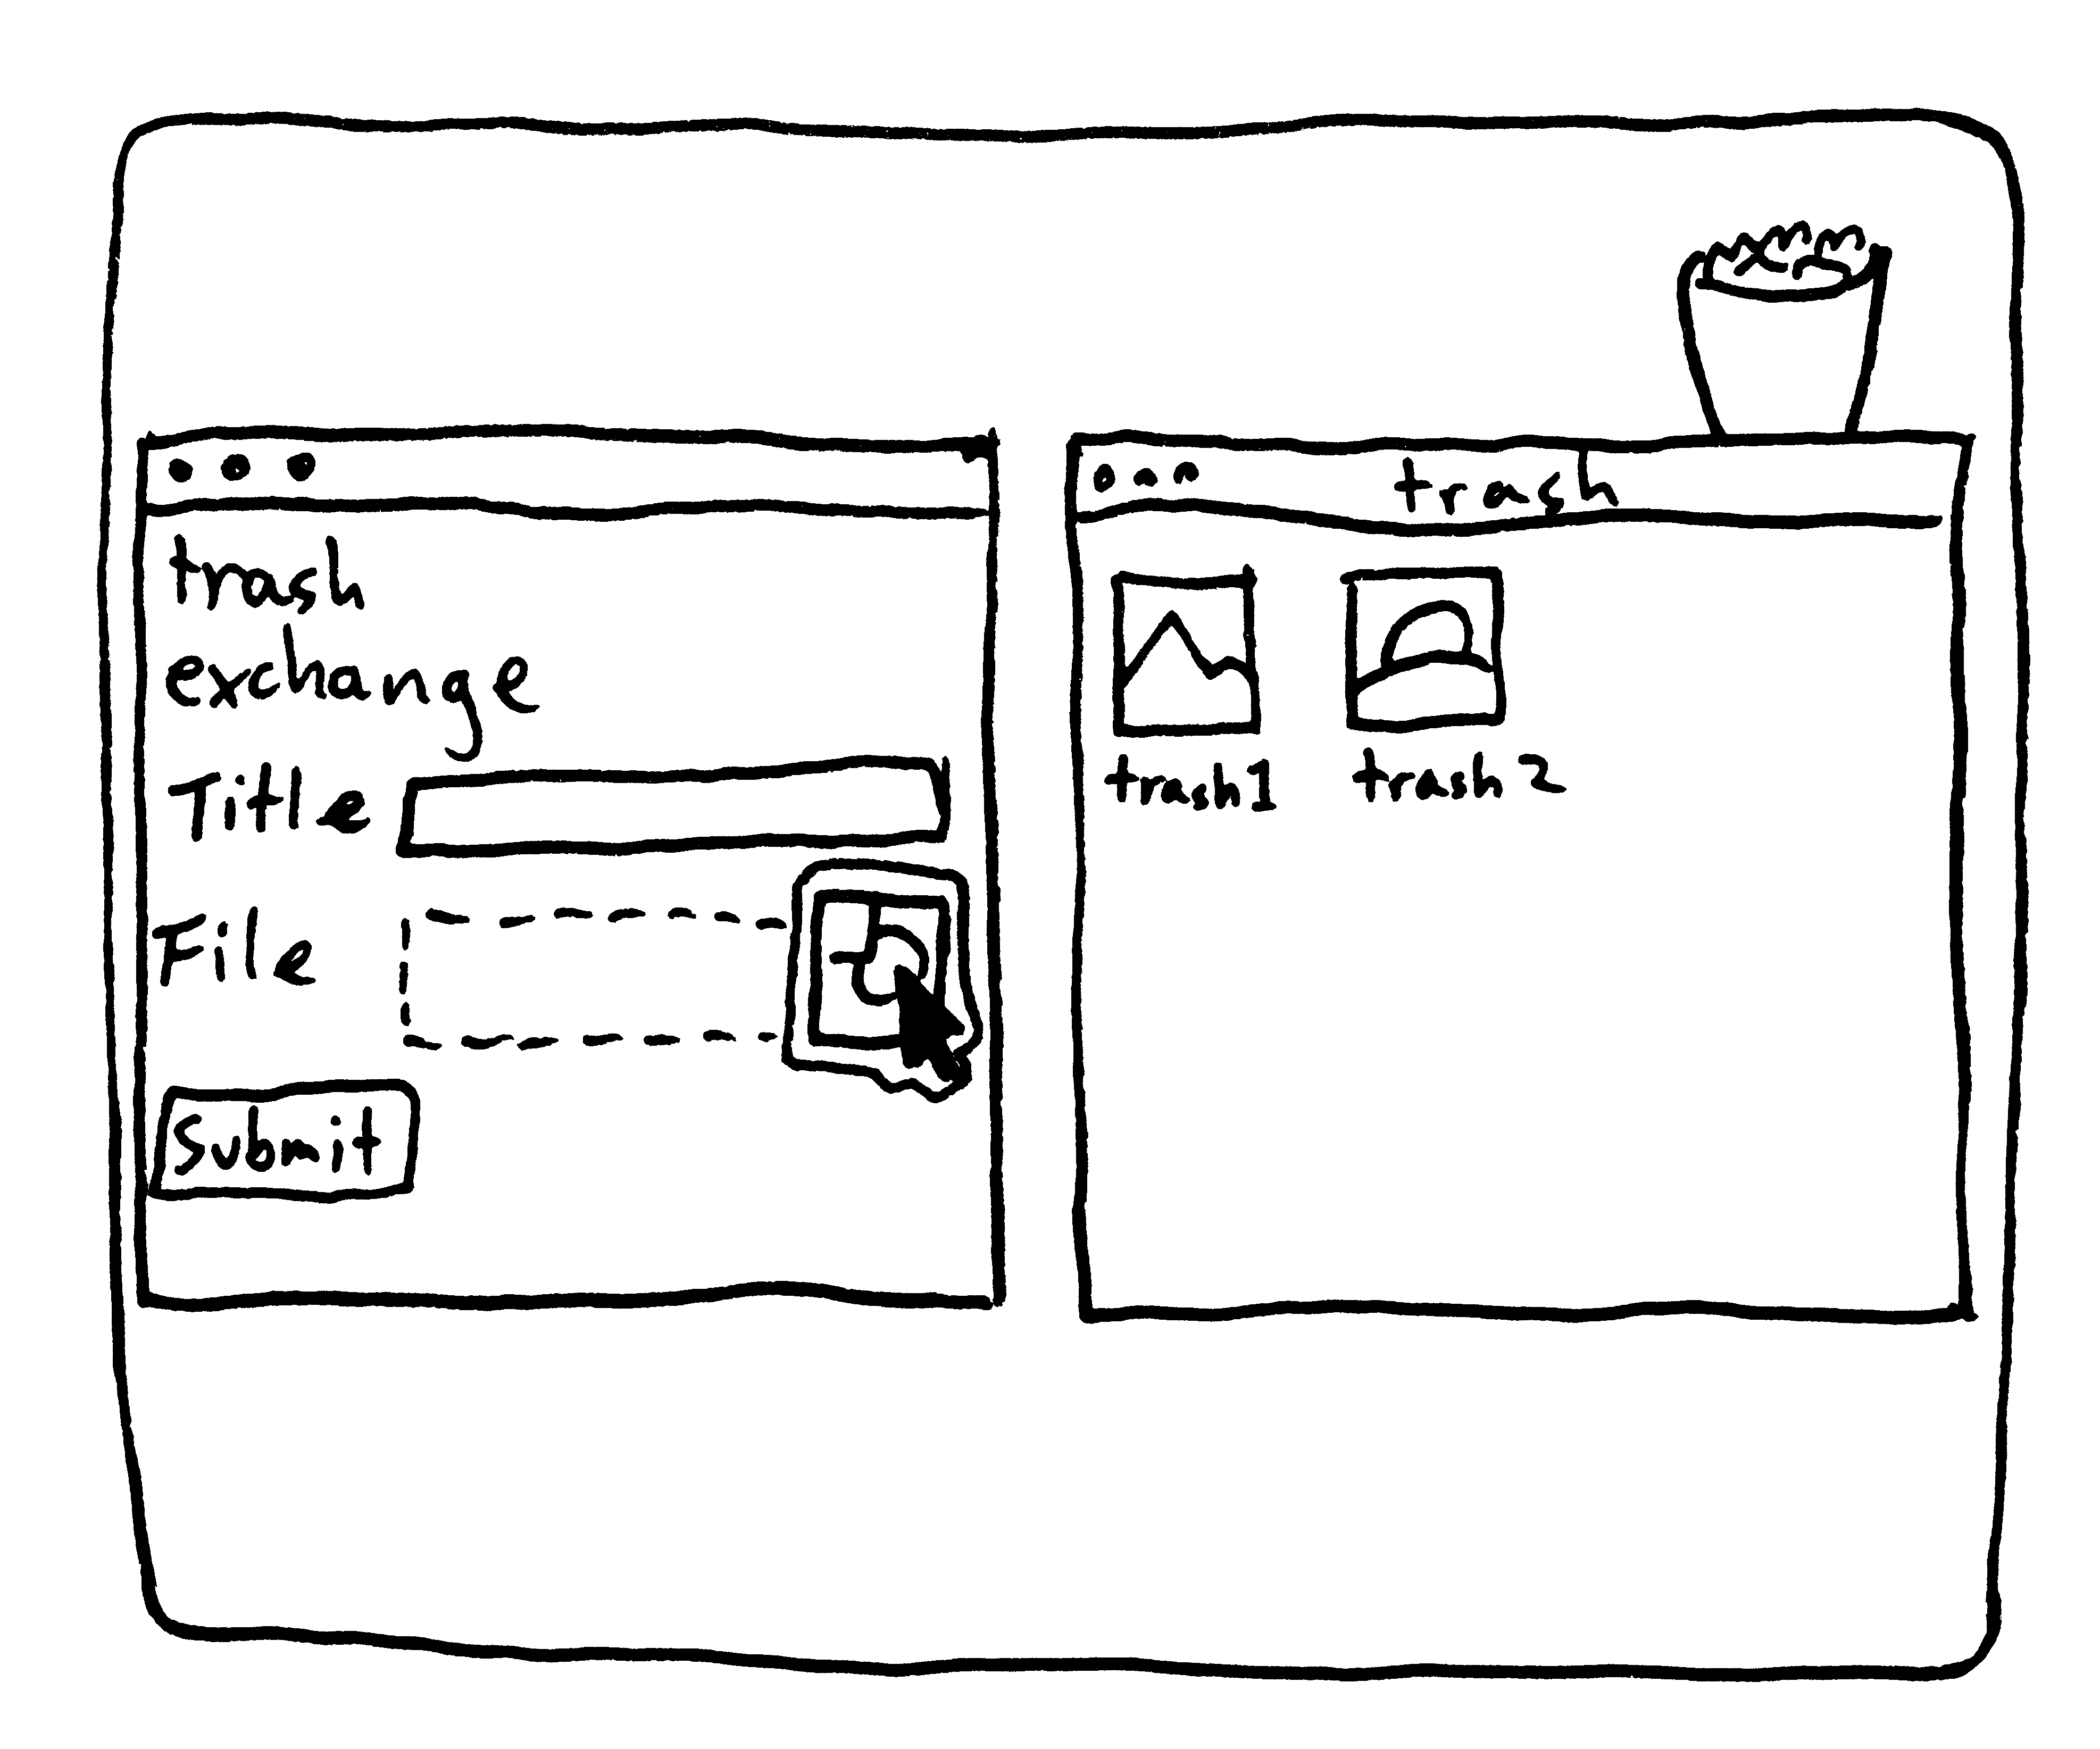 trash
exchange
Title
File
Submit
trash
trash1
trash2